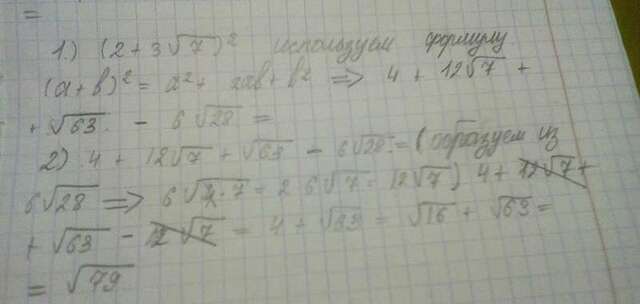 =
1.) (2 + 3√7)² используем формулу
(a+b)² = a² + 2ab + b² => 4 + 12√7 +
+ √63 - 6√28 =
2) 4 + 12√7 + √63 - 6√28 = (образуем из
6√28 => 6√4·7 = 2 6√7 = 12√7) 4 + 12√7 +
+ √63 - 12√7 = 4 + √63 = √16 + √63 =
= √79